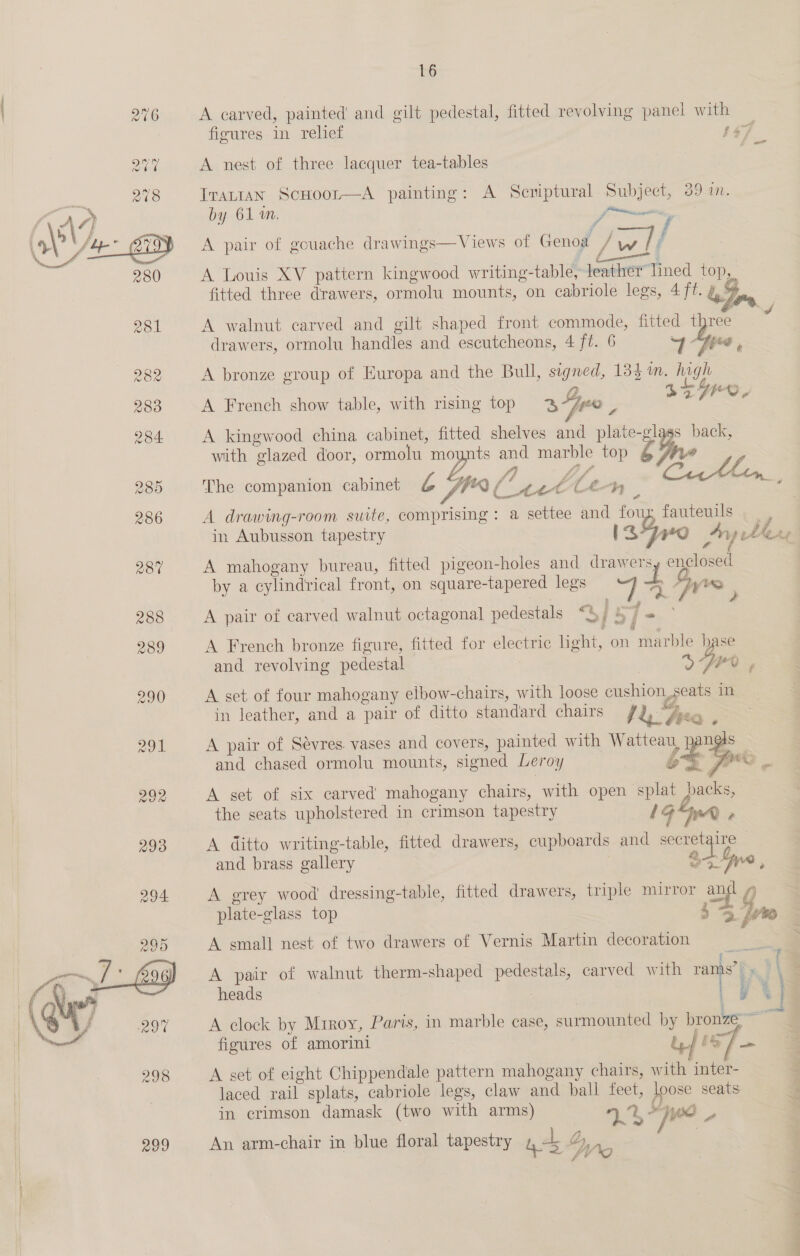 16
276 A carved, painted and gilt pedestal, fitted revolving panel with
figures in relief
277 A nest of three lacquer tea-tables
278 ITALIAN SCHOOL—A painting: A Scriptural Subject, 39 in.
by 61 in.
279 A pair of gouache drawings—Views of Genoa
280 A Louis XV pattern kingwood writing-table, leather lined top,
fitted three drawers, ormolu mounts, on cabriole legs, 4 ft.
281 A walnut carved and gilt shaped front commode, fitted three
drawers, ormolu handles and escutcheons, 4 ft. 6
282 A bronze group of Europa and the Bull, signed, 13½ in. high
283 A French show table, with rising top
284 A kingwood china cabinet, fitted shelves and plate-glass back,
with glazed door, ormolu mounts and marble top
285 The companion cabinet
286 A drawing-room suite, comprising: a settee and four fauteuils
in Aubusson tapestry
287 A mahogany bureau, fitted pigeon-holes and drawers, enclosed
by a cylindrical front, on square-tapered legs
288 A pair of carved walnut octagonal pedestals
289 A French bronze figure, fitted for electric light, on marble base
and revolving pedestal
290 A set of four mahogany elbow-chairs, with loose cushion seats in
in leather, and a pair of ditto standard chairs
291 A pair of Sévres vases and covers, painted with Watteau panels
and chased ormolu mounts, signed Leroy
292 A set of six carved mahogany chairs, with open splat backs,
the seats upholstered in crimson tapestry
293 A ditto writing-table, fitted drawers, cupboards and secretaire
and brass gallery
294 A grey wood dressing-table, fitted drawers, triple mirror and
plate-glass top
295 A small nest of two drawers of Vernis Martin decoration
296 A pair of walnut therm-shaped pedestals, carved with rams'
heads
297 A clock by Miroy, Paris, in marble case, surmounted by bronze
figures of amorini
298 A set of eight Chippendale pattern mahogany chairs, with inter-
laced rail splats, cabriole legs, claw and ball feet, loose seats
in crimson damask (two with arms)
299 An arm-chair in blue floral tapestry